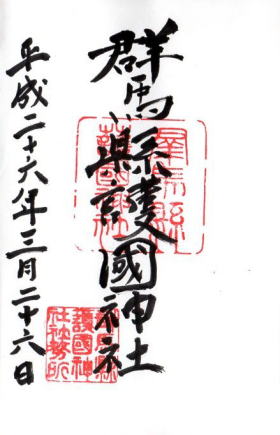 群馬縣護國神社
平成二十六年三月二十六日
群馬縣護國神社
群馬縣護國神社社務所